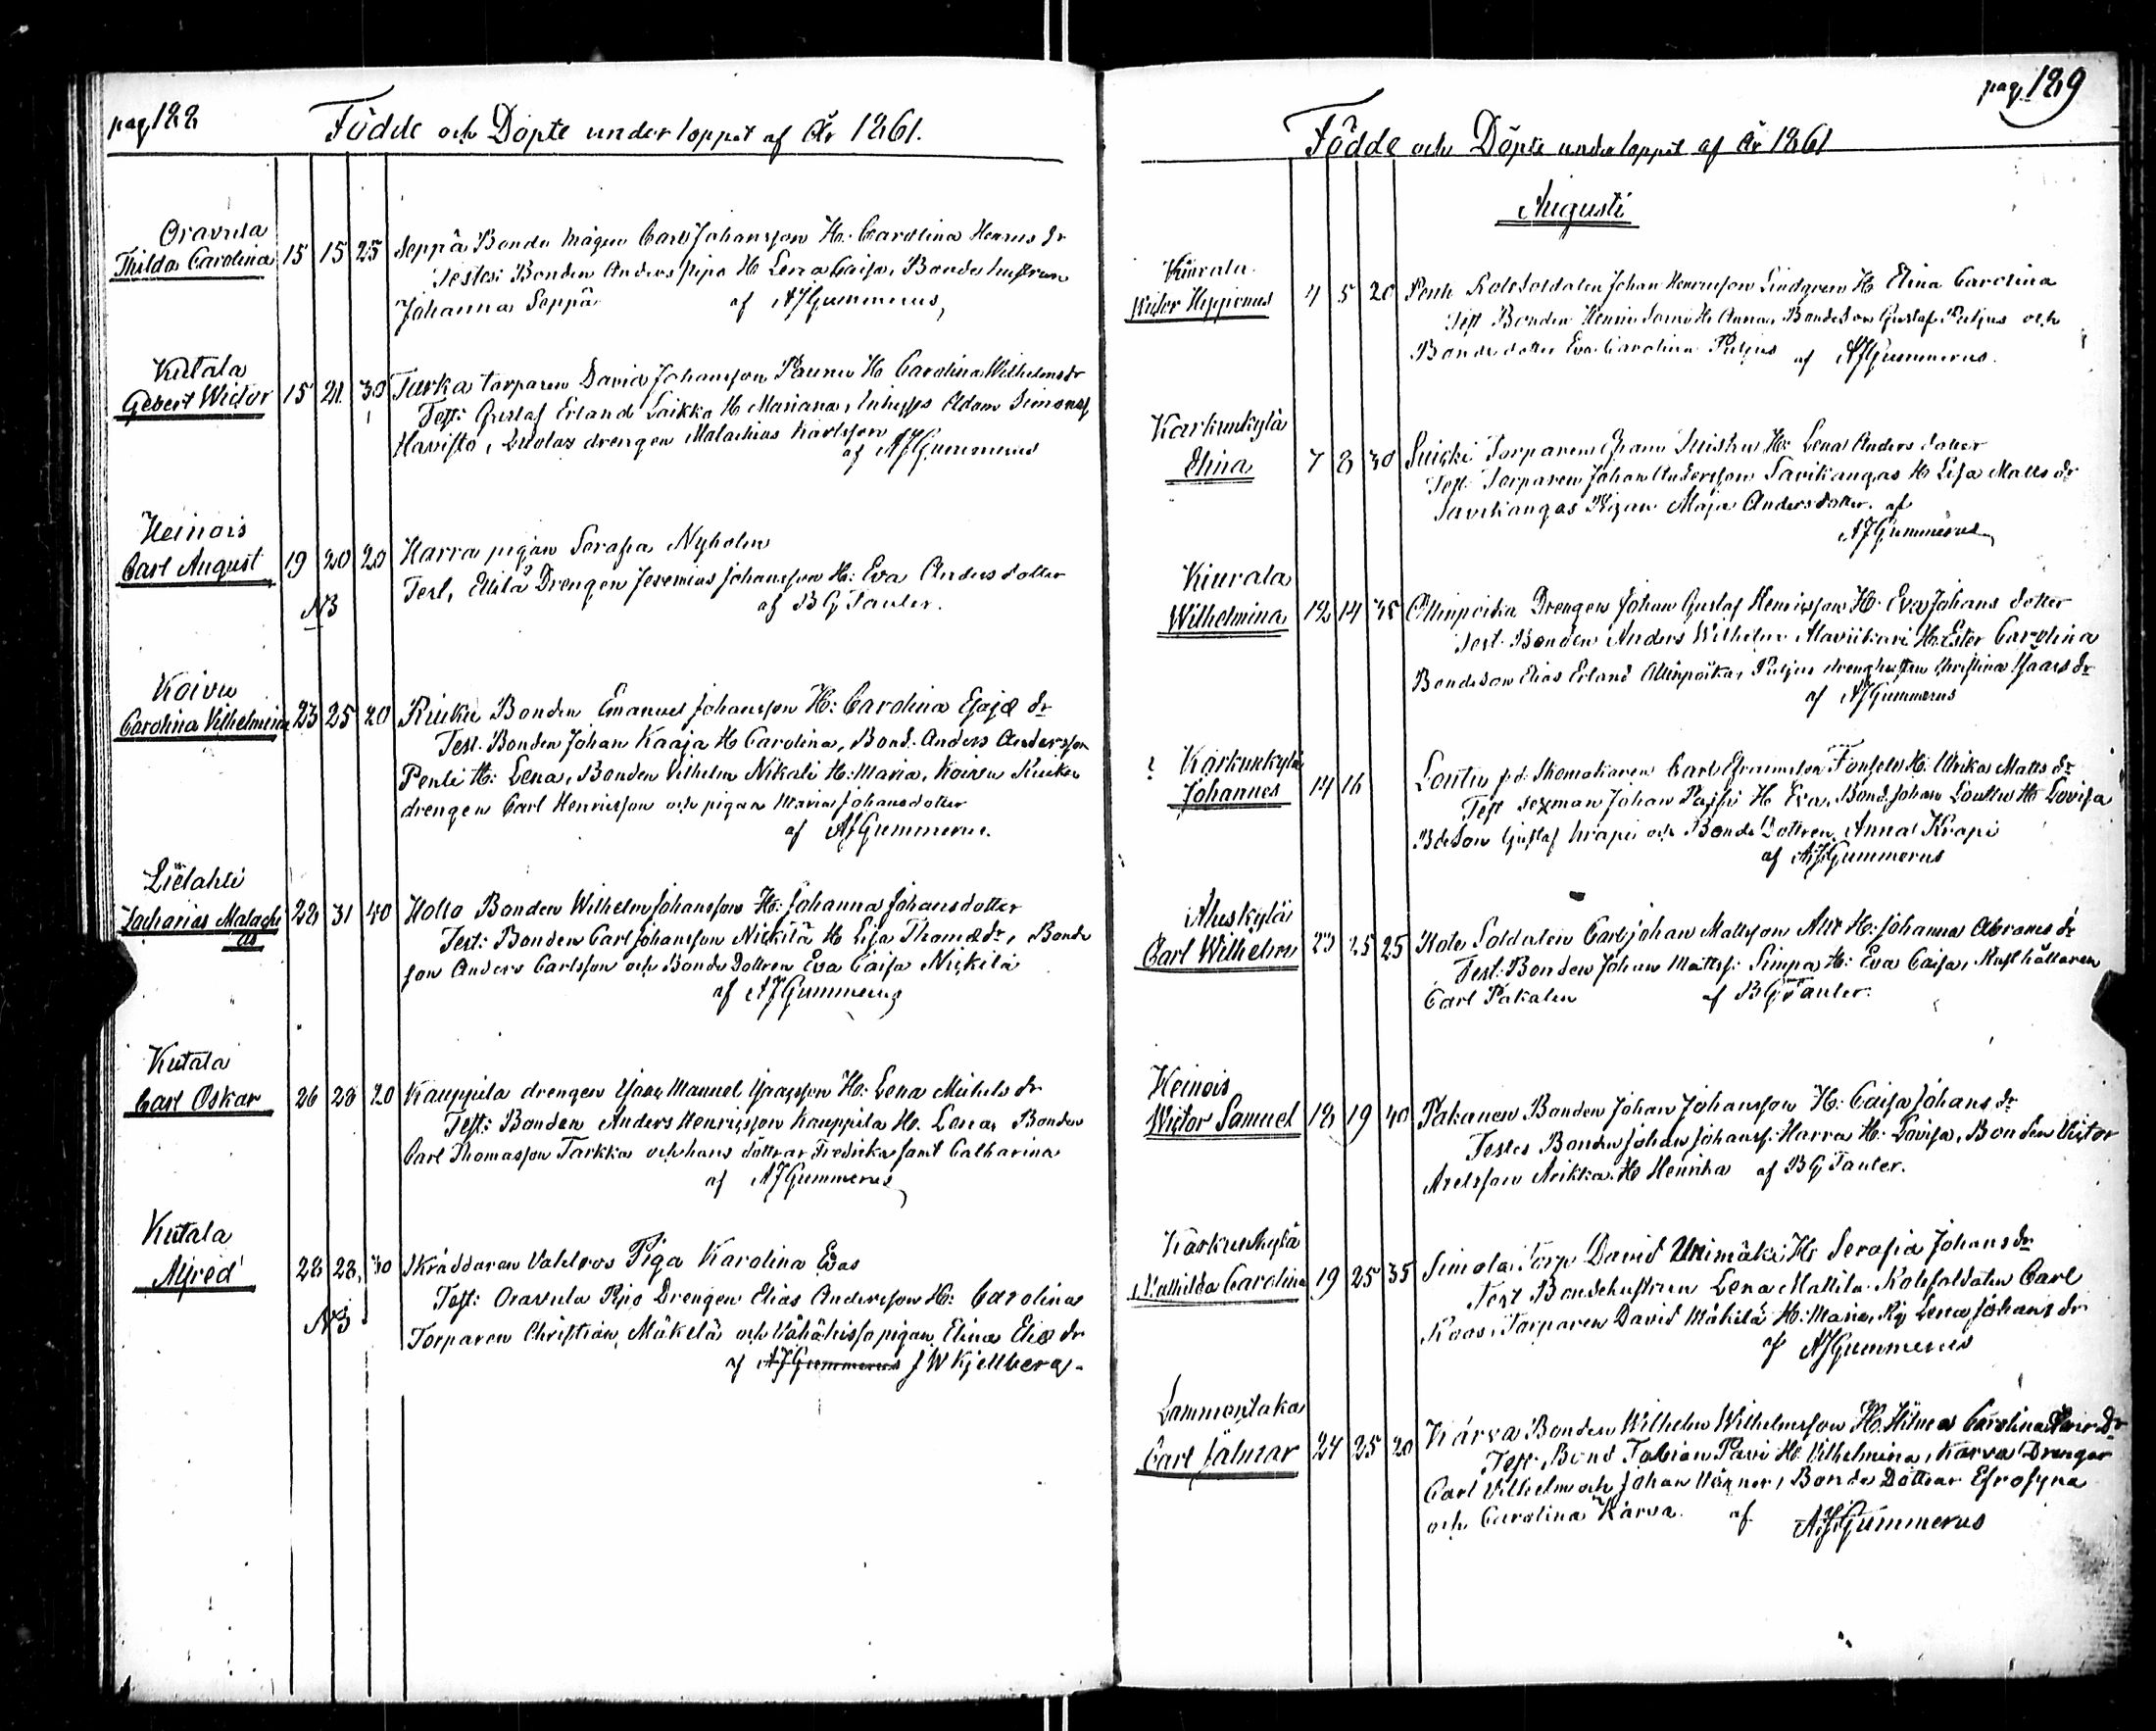 pag. 188
Födde och Döpte under loppet af År 1861.
Oravula
Thilda Carolina 15 15 25 Seppä Bonde mågen Carl Johansson H. Carolina Henrics dr
Testes: Bonden Anders Pipo H Lena Caisa, Bonde hustrun
Johanna Seppä af AJGummerus,
Kutala
Gebert Wictor 15 21 30 Tarka torparen David Johansson Paunu H Carolina Wilhelms dr
Test: Gustaf Erland Laikko H Mariana, Inhyss Adam Simonss
Havisto, drengen Malachias Karlsson
af AJGummerus
Heinois
Carl August 19 20 20 Harra pigan Serafia Nyholm
NB
Test, Ellilä Drengen Jeremias Johansson H: Eva Anders dotter
af BG Tauler.
Koivu
Carolina Vilhelmina 23 25 20 Riuku Bonden Emanuel Johansson H: Carolina Esajæ dr
Test. Bonden Johan Kaaja H Carolina, Bond. Anders Andersson
Penti H: Lena, Bonden Vilhelm Nikali H: Maria, Koivu Riuku
drengen Carl Henricsson och pigan Maria Johansdotter
af AJGummerus.
Lielahti
Zacharias Malachi
as 28 31 40 Hollo Bonden Wilhelm Johansson H: Johanna Johansdotter
Test: Bonden Carl Johansson Nickilä H Lisa Thomæ dr, Bonde
son Anders Carlsson och Bonde Dottren Eva Caisa Nickilä
af AJGummerus
Kutala
Carl Oskar 26 28 20 Kauppila drengen Isaac Manuel Isaacsson H: Lena Michels dr
Test: Bonden Anders Henricsson Kauppila H. Lena, Bonden
Carl Thomasson Tarkka och hans döttrar Fredrika samt Catharina
af AJGummerus
Kutala
Alfred 28 28 30 Skräddaren Vahlroos Piga Karolina Evas
NB
Test: Oravula Pipo Drengen Elias Andersson H: Carolina
Torparen Christian Mäkelä och Vähähissa pigan Elina Eliæ dr
af AJGummerus JW Kjellberg.
pag. 189
Födde och Döpte under loppet af År 1861
Augusti
Kiurala
Victor Hyppenus 4 5 20 Penti Rotesoldaten Johan Henricsson Lindgren H Elina Carolina
Test Bonden Henric Sarri H Anna, Bondeson Gustaf Puljus och
Bonde dotter Eva Carolina Puljus af AJGummerus.
Karkunkylä
Elina 7 8 30 Suiski Torparen Efraim Suisku H: Lena Anders dotter
Test. Torparen Johan Andersson Savikangas H Lisa Matts dr
Savikangas Pigan Maja Andersdotter. af
AJGummerus
Kiurala
Wilhelmina 12 14 35 Ollinpoika Drengen Johan Gustaf Henricsson H. Eva Johans dotter
Test. Bonden Anders Wilhelm Alaviikari H: Ester Carolina
Bondeson Elias Erland Ollinpoika, Puljus dreng hustrun Christina Isaacs dr
af AJGummerus
Karkunkylä
Johannes 14 16 Louttu f.d. Skomakaren Carl Efraimsson Fonsell H: Ulrika Matts dr
Test sexman Johan Passi H Eva, Bond. Johan Louttu H Lovisa
Bdeson Gustaf Krapi och Bonde Dottren Anna Krapi
af AJGummerus
Aluskylä
Carl Wilhelm 23 25 25 Rote Soldaten Carl Johan Mattsson Alir H: Johanna Abrams dr
Test: Bonden Johan Mattss: Simpa H: Eva Caisa, Rusthållaren
Carl Pakalen af BG Tauler.
Heinois
Wictor Samuel 18 19 40 Pakanen Bonden Johan Johansson H: Caisa Johans dr
Testes Bonden Johan Johanss: Harra H: Lovisa, Bonden Victor
Axelsson Arikka H Henrika af BG Tauler.
Karkunkylä
Mathilda Carolina 19 25 35 Simola Torp David Unimäki H: Serafia Johans dr
Test Bondehustrun Lena Mattila. Rotesoldaten Carl
Roos, Torparen David Mäkilä H: Maria, Pig Lena Johans dr
af AJGummerus
Lammentaka
Carl Jalmar 24 25 20 Kärvä Bonden Wilhelm Wilhelmsson H. Hilma Carolina dr
Test. Bond Fabian Pavi H Vilhelmina, Kärvä Drengar
Carl Vilhelm och Johan Verner, Bonde Döttrar Efrosyna
och Carolina Kärvä. af AJGummerus